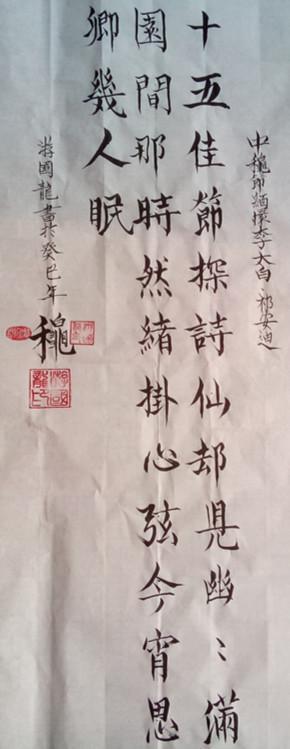 中秋節緬懷李太白 祁安迪
十五佳節探詩仙却見幽〻滿
園間那時然緒掛心弦今宵思
卿幾人眠
游國龍書於癸巳年